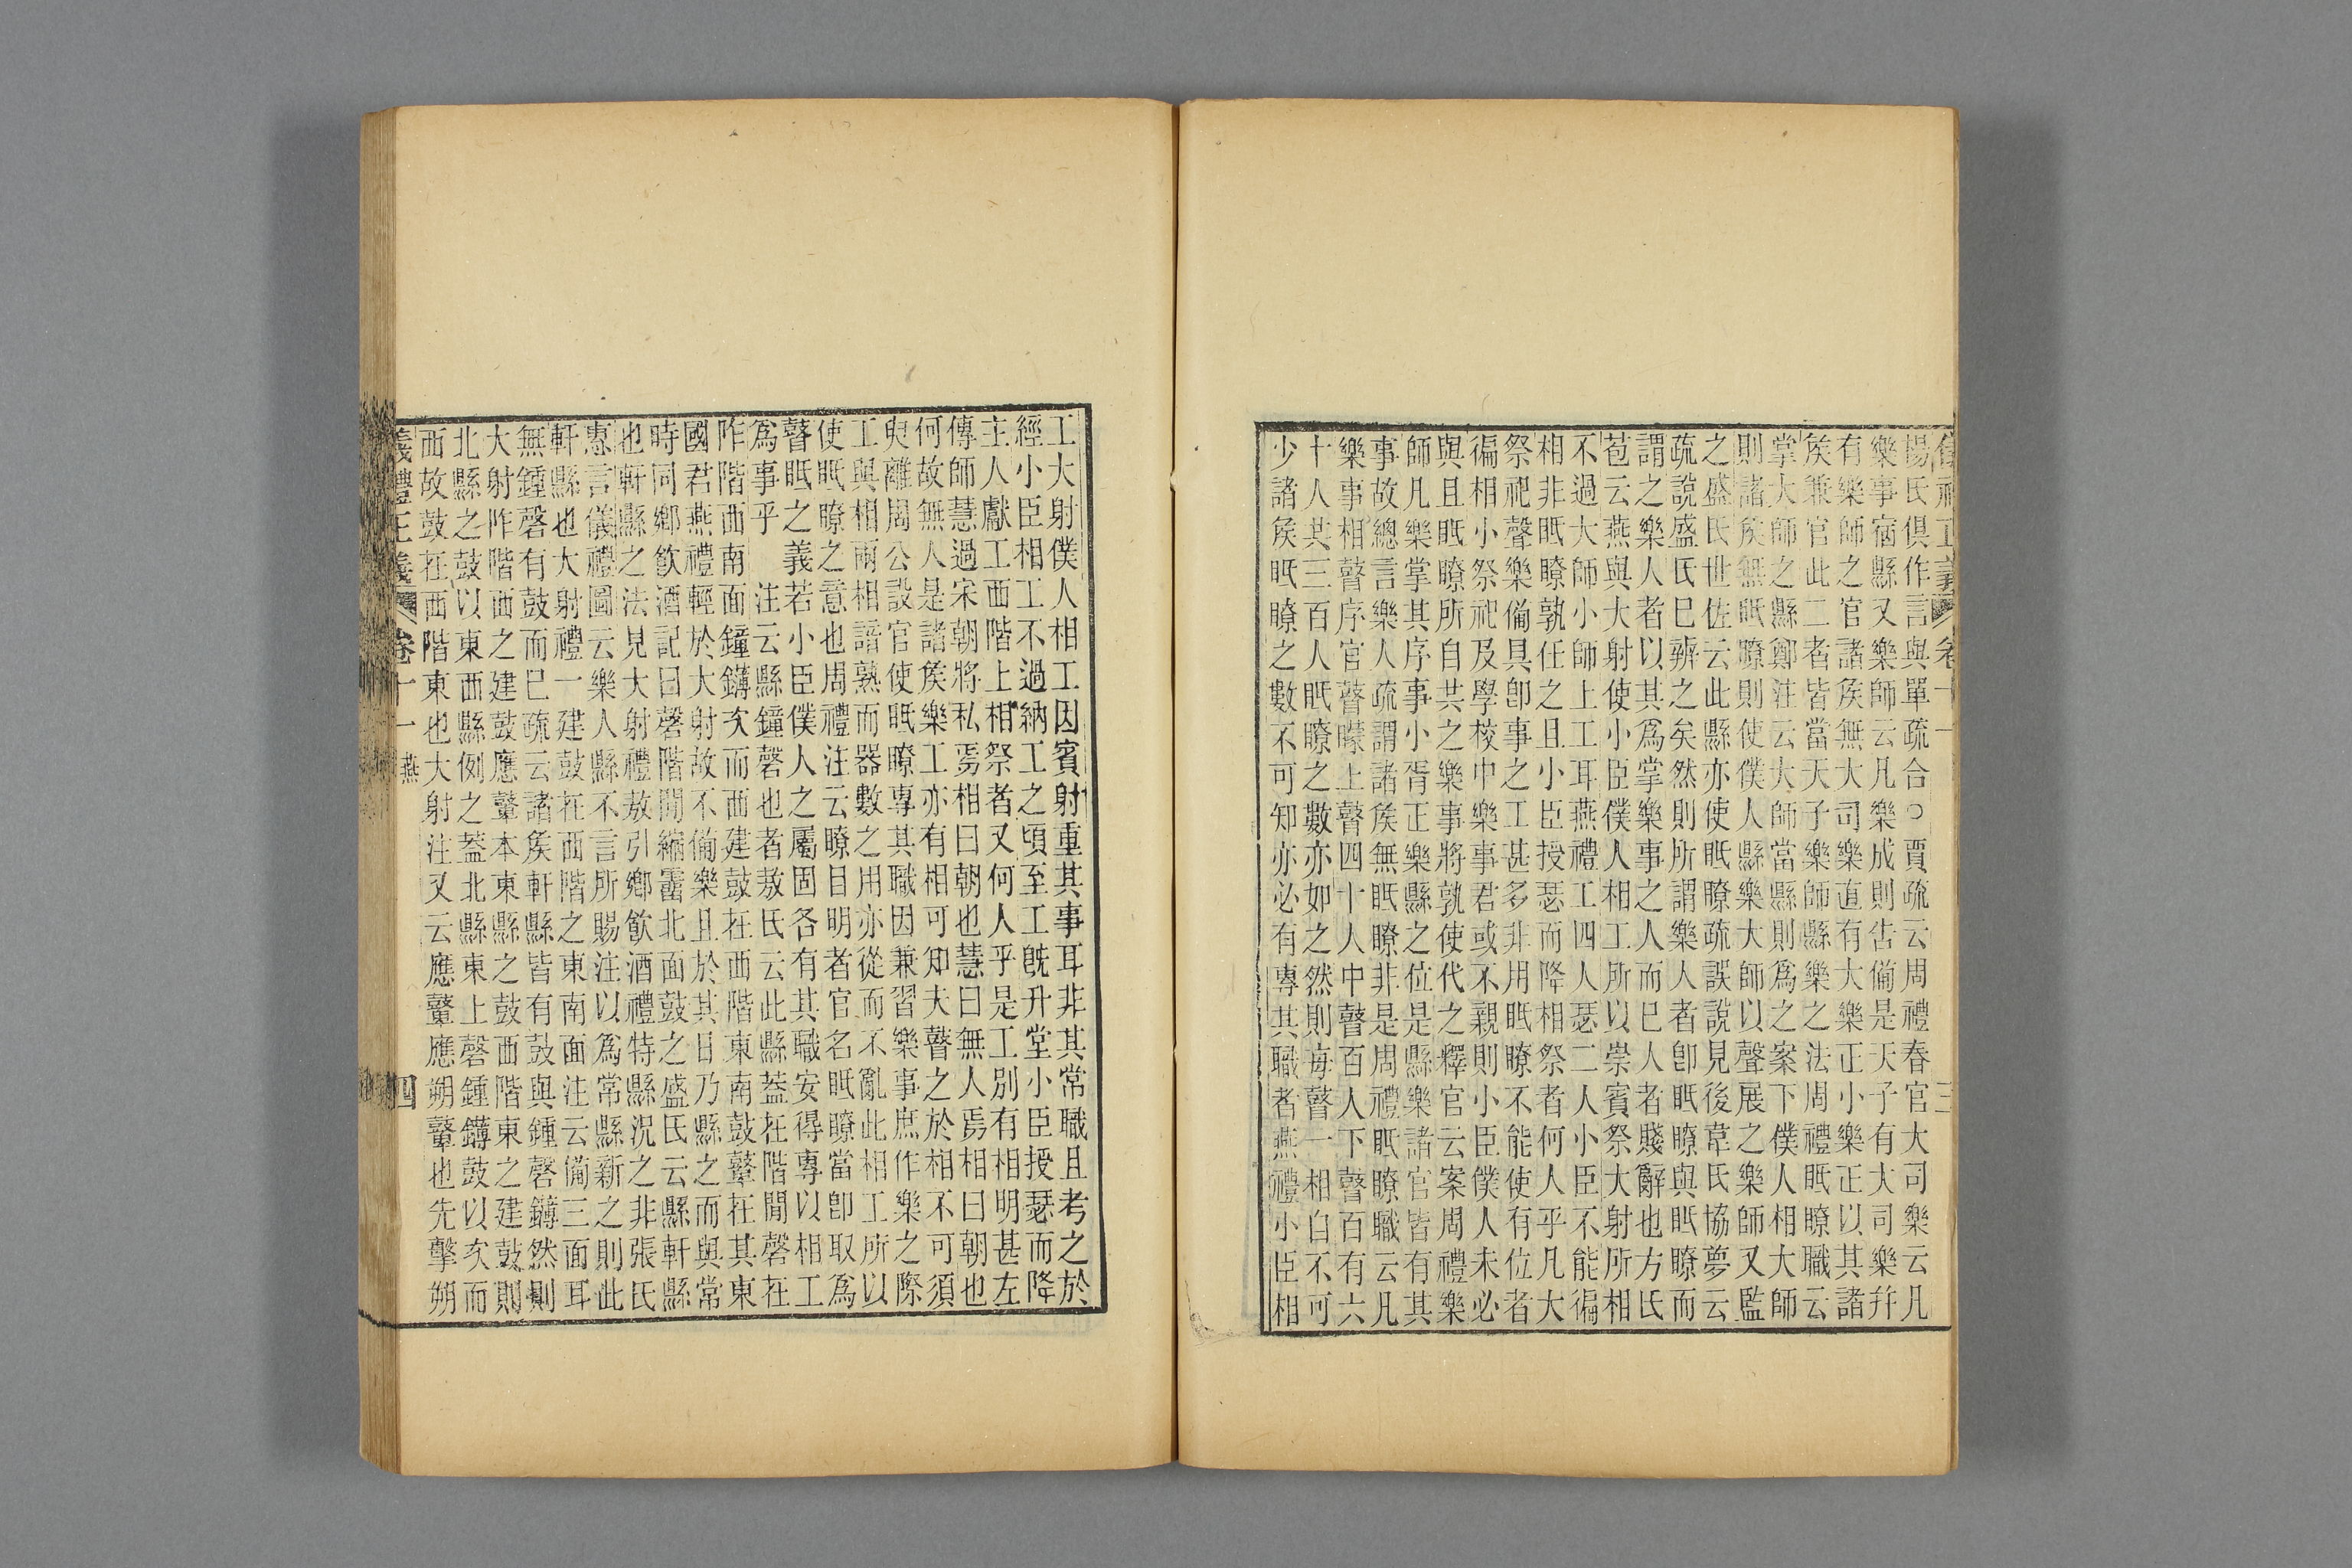 儀禮正義 卷十一 三
楊氏俱作言與單疏合○賈疏云周禮春官大司樂云凡
樂事宿縣又樂師云凡樂成則告備是天子有大司樂幷
有樂師之官諸矦無大司樂直有大樂正小樂正以其諸
矦兼官此二者皆當天子樂師縣樂之法周禮眡瞭職云
掌大師之縣鄭注云大師當縣則爲之案下僕人相大師
則諸矦無眡瞭則使僕人縣樂大師以聲展之樂師又監
之盛氏世佐云此縣亦使眡瞭疏誤說見後韋氏協夢云
疏說盛氏巳辨之矣然則所謂樂人者卽眡瞭與眡瞭而
謂之樂人者以其爲掌樂事之人而巳人者賤辭也方氏
苞云燕與大射使小臣僕人相工所以崇賓祭大射所相
不過大師小師上工耳燕禮工四人瑟二人小臣不能徧
相非眡瞭孰任之且小臣授瑟而降相祭者何人乎凡大
祭祀聲樂備具卽事之工甚多非用眡瞭不能使有位者
徧相小祭祀及學校中樂事君或不親則小臣僕人未必
與且眡瞭所自共之樂事將孰使代之釋官云案周禮樂
師凡樂掌其序事小胥正樂縣之位是縣樂諸官皆有其
事故總言樂人疏謂諸矦無眡瞭非是周禮眡瞭職云凡
樂事相瞽序官瞽矇上瞽四十人中瞽百人下瞽百有六
十人共三百人眡瞭之數亦如之然則每瞽一相自不可
少諸矦眡瞭之數不可知亦必有專其職者燕禮小臣相
工大射僕人相工因賓射重其事耳非其常職且考之於
經小臣相工不過納工之頃至工旣升堂小臣授瑟而降
主人獻工西階上相祭者又何人乎是工別有相明甚左
傳師慧過宋朝將私焉相曰朝也慧曰無人焉相曰朝也
何故無人是諸矦樂工亦有相可知夫瞽之於相不可須
臾離周公設官使眡瞭專其職因兼習樂事庶作樂之際
工與相兩相諳熟而器數之用亦從而不亂此相工所以
使眡瞭之意也周禮注云瞭目明者官名眡瞭當卽取爲
瞽眡之義若小臣僕人之屬固各有其職安得專以相工
爲事乎　注云縣鐘磬也者敖氏云此縣蓋在階閒磬在
阼階西南面鐘鎛次而西建鼓在西階東南鼓鼙在其東
國君燕禮輕於大射故不備樂且於其日乃縣之而與常
時同鄉飮酒記曰磬階閒縮霤北面鼓之盛氏云縣軒縣
也軒縣之法見大射禮敖引鄉飮酒禮特縣況之非張氏
惠言儀禮圖云樂人縣不言所賜注以爲常縣新之則此
軒縣也大射禮一建鼓在西階之東南面注云備三面耳
無鍾磬有鼓而巳疏云諸矦軒縣皆有鼓與鍾磬鎛然則
大射阼階西之建鼓應鼙本東縣之鼓西階東之建鼓則
北縣之鼓以東西縣例之蓋北縣東上磬鍾鎛鼓以次而
西故鼓在西階東也大射注又云應鼙應朔鼙也先擊朔
義禮正義 卷十一 燕 四